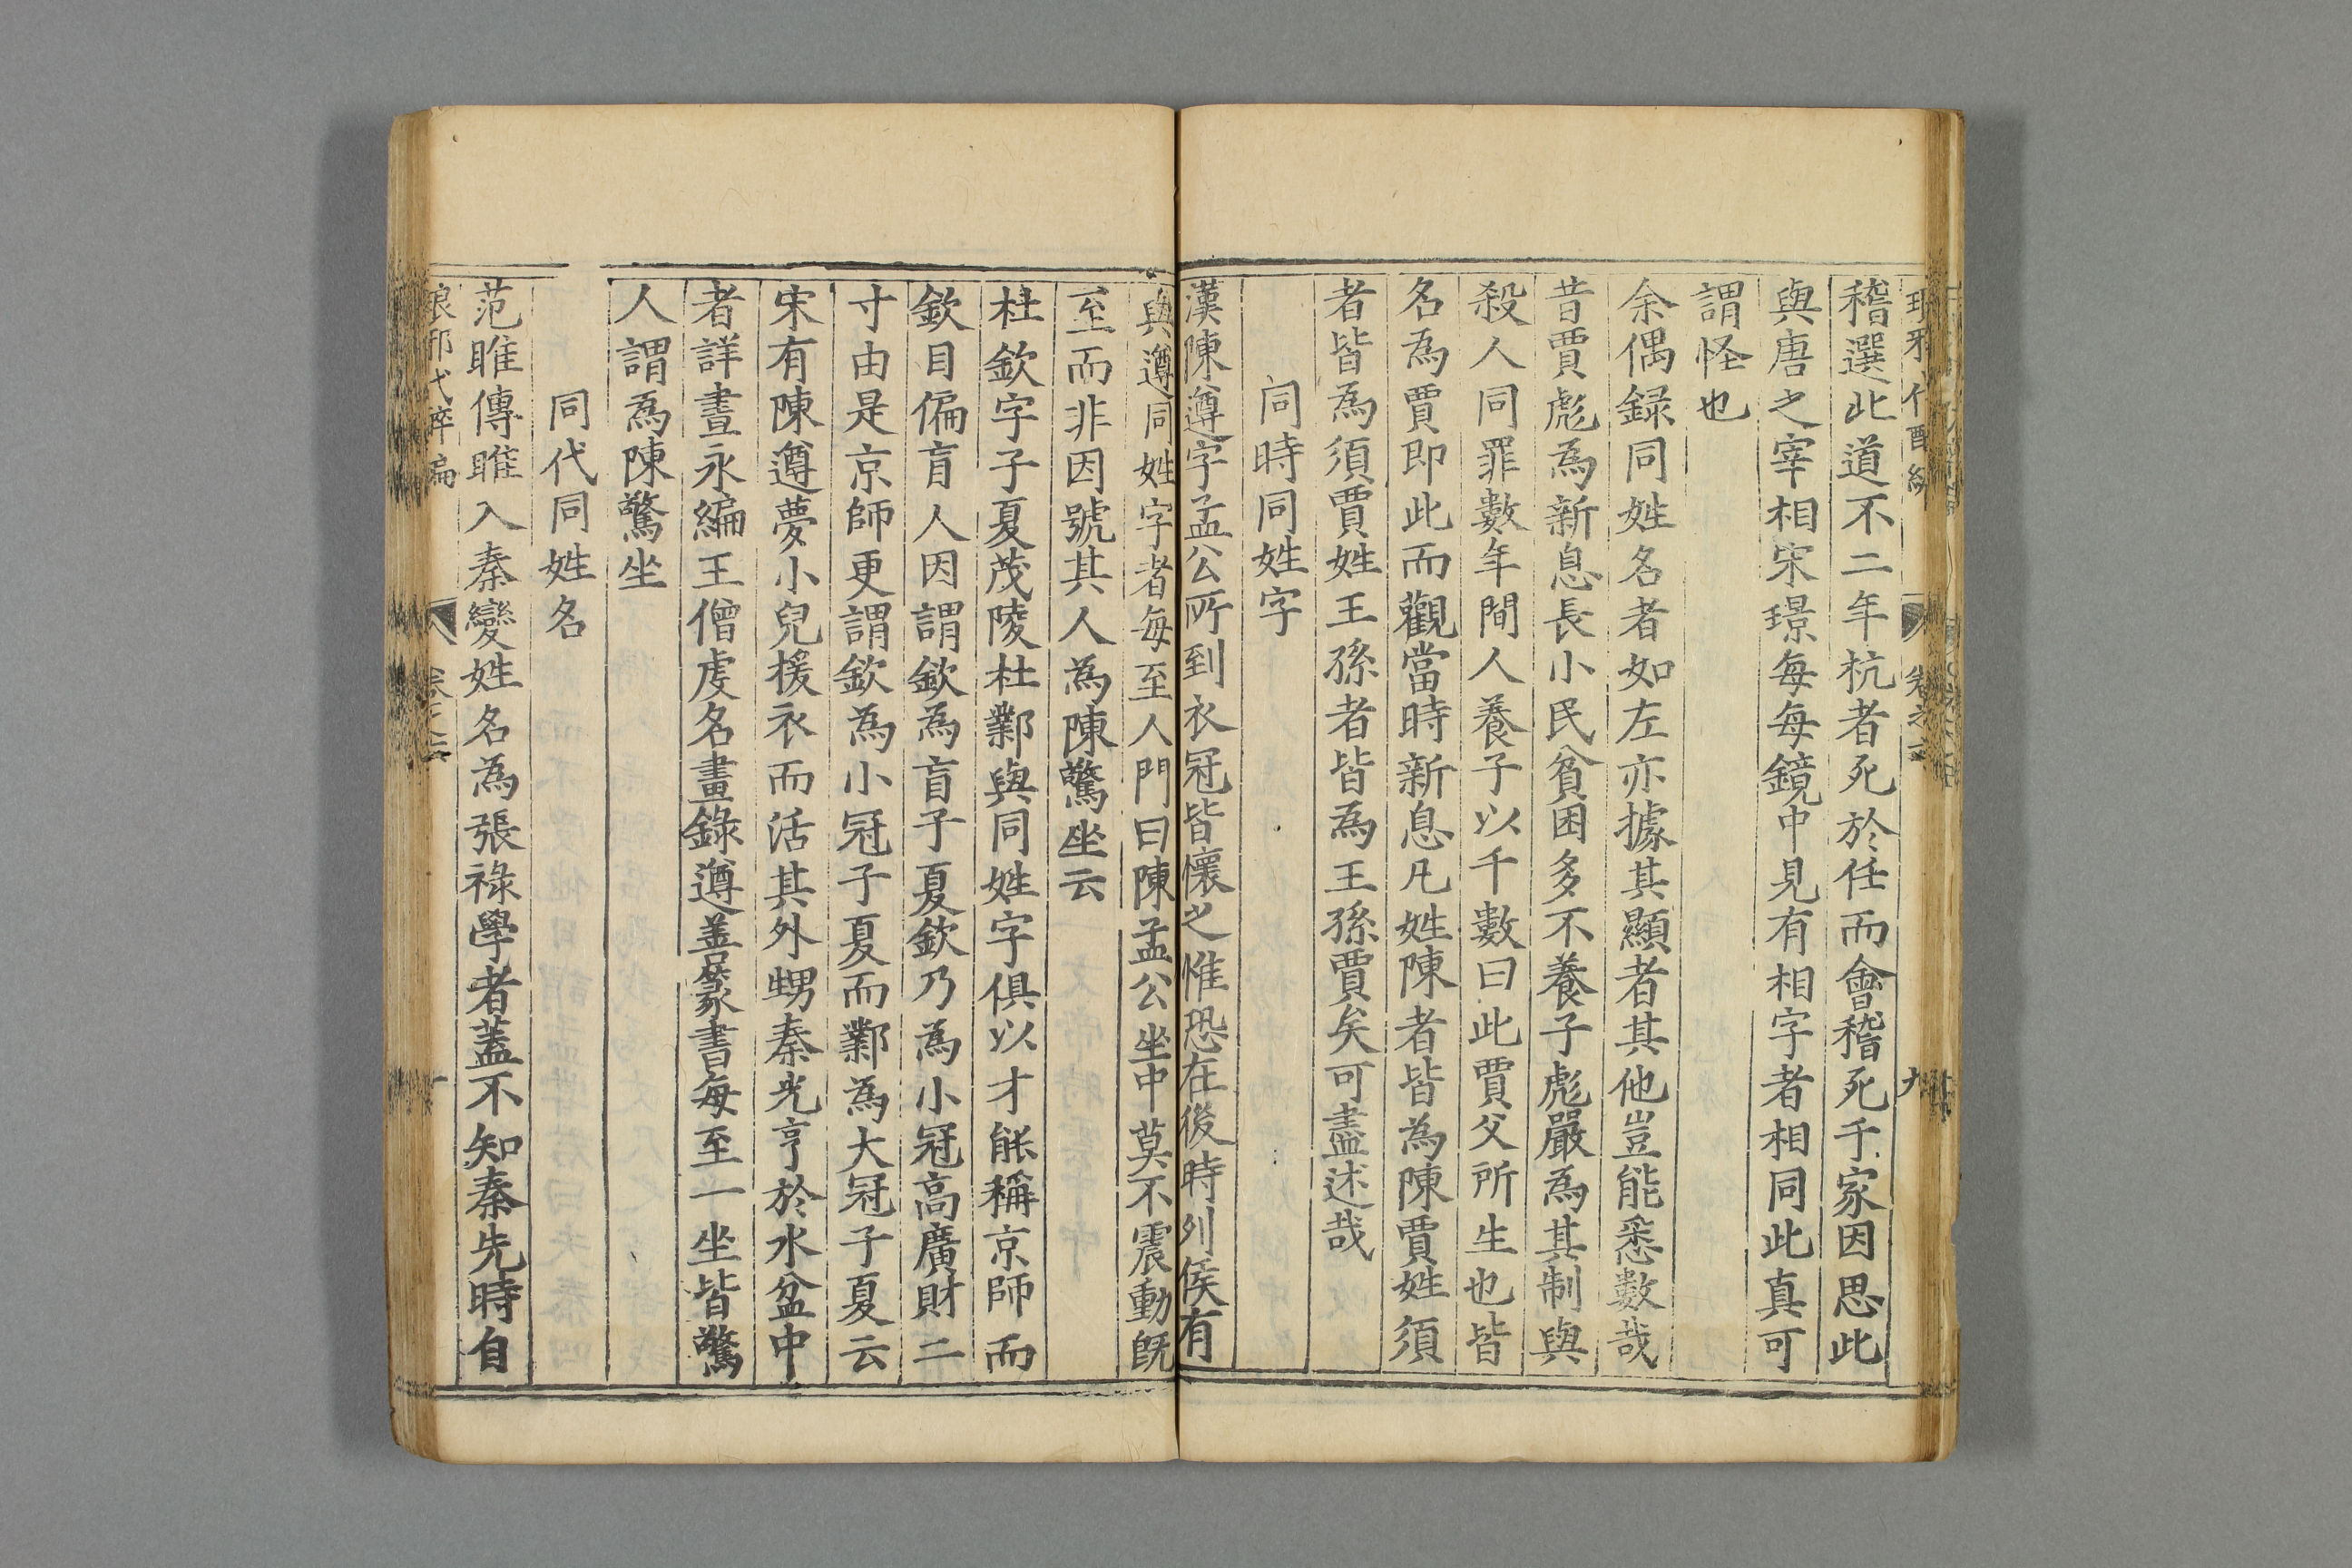 稽選此道不二年杭者死於任而會稽死千家因思此
與唐之宰相宋璟每每鏡中見有相字者相同此真可
謂怪也
余偶録同姓名者如左亦據其顯者其他豈能悉數哉
昔賈彪為新息長小民貧困多不養子彪嚴為其制與
殺人同罪數年間人養子以千數曰此賈父所生也皆
名為賈即此而觀當時新息凡姓陳者皆為陳賈姓須
者皆為須賈姓王孫者皆為王孫賈矣可盡述哉
同時同姓字
漢陳遵字孟公所到衣冠皆懷之惟恐在後時列侯有
與遵同姓字者每至人門曰陳孟公坐中莫不震動旣
至而非因號其人為陳驚坐云
杜欽字子夏茂陵杜鄴與同姓字俱以才能稱京師而
欽目偏盲人因謂欽為盲子夏欽乃為小冠高廣財二
寸由是京師更謂欽為小冠子夏而鄴為大冠子夏云
宋有陳遵夢小兒援衣而活其外甥秦光亨於水盆中
者詳晝永編王僧虔名畫錄遵善篆書每至一坐皆驚
人謂為陳驚坐
同代同姓名
范睢傳睢入秦變姓名為張祿學者蓋不知秦先時自